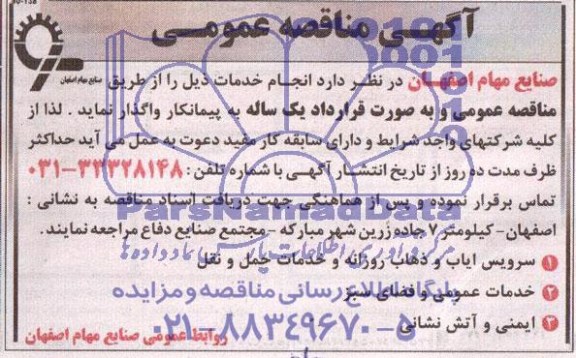 آگهی مناقصه عمومی
صنایع مهام اصفهان
صنایع مهام اصفهان در نظر دارد انجام خدمات ذیل را از طریق
مناقصه عمومی و به صورت قرارداد یک ساله به پیمانکار واگذار نماید . لذا از
کلیه شرکتهای واجد شرایط و دارای سابقه کار مفید دعوت به عمل می آید حداکثر
ظرف مدت ده روز از تاریخ انتشار آگهی با شماره تلفن : ۳۳۳۲۸۱۴۸-۰۳۱
تماس برقرار نموده و پس از هماهنگی جهت دریافت اسناد مناقصه به نشانی :
ParsNamadData
اصفهان - کیلومتر ۷ جاده زرین شهر مبارکه - مجتمع صنایع دفاع مراجعه نمایند.
۱ سرویس ایاب و ذهاب روزانه و خدمات حمل و نقل
۲ خدمات عمومی و فضای سبز
پایگاه اطلاع رسانی مناقصه و مزایده
۳ ایمنی و آتش نشانی
۰۲۱-۸۸۳۴۹۶۷۰-۵
روابط عمومی صنایع مهام اصفهان